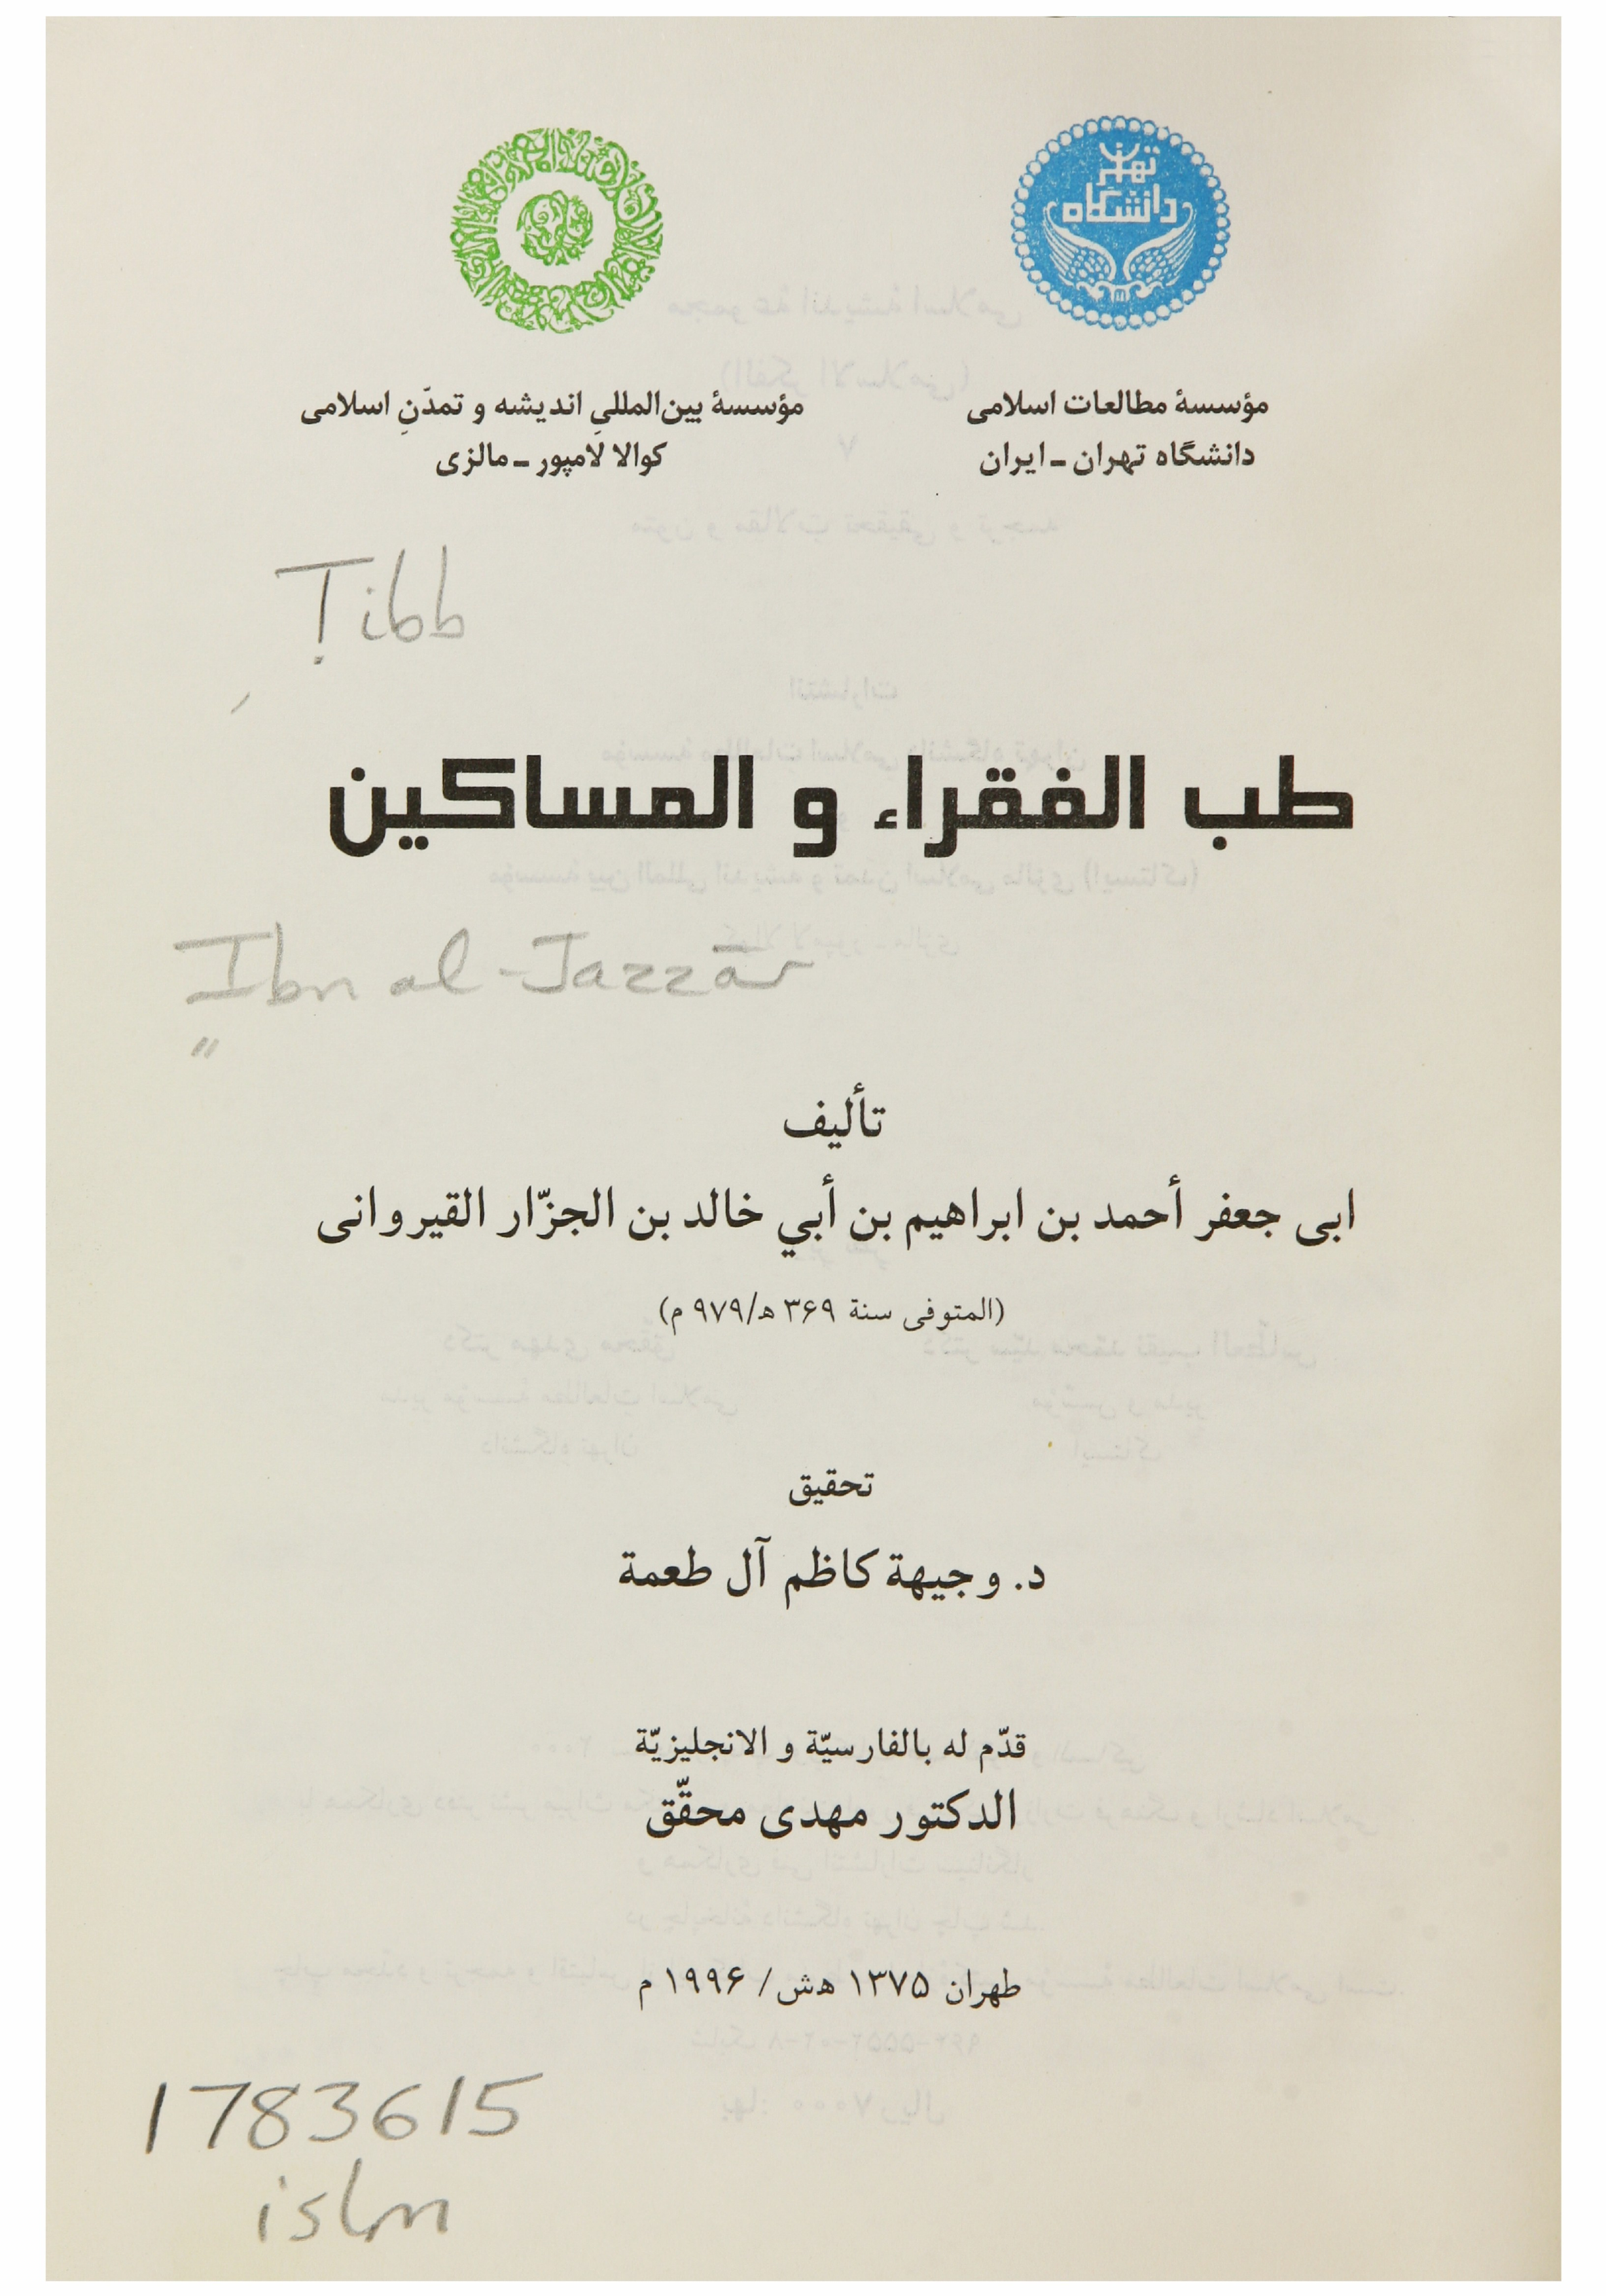 تهران
دانشگاه
مؤسسهٔ مطالعات اسلامی
دانشگاه تهران ـ ایران
مؤسسهٔ بین‌المللیِ اندیشه و تمدّنِ اسلامی
کوالا لامپور ـ مالزی
Ṭibb
طب الفقراء و المساكين
Ibn al-Jazzār
تأليف
ابی جعفر أحمد بن ابراهیم بن أبي خالد بن الجزّار القیروانی
(المتوفی سنة ۳۶۹ ه/۹۷۹ م)
تحقیق
د. وجیهة کاظم آل طعمة
قدّم له بالفارسیّة و الانجلیزیّة
الدکتور مهدی محقّق
طهران ۱۳۷۵ هش/ ۱۹۹۶ م
1783615
islm